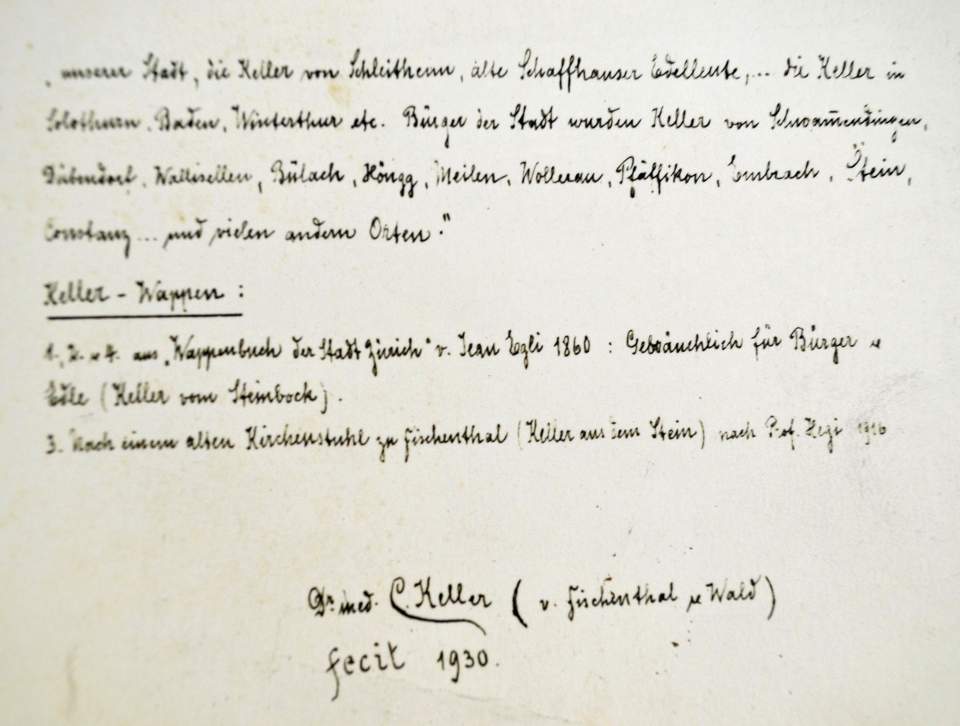 „unserer Stadt, die Keller von Schleitheim, alte Schaffhauser Edelleute,... die Keller in
Solothurn, Baden, Winterthur etc. Bürger der Stadt wurden Keller von Schwam̅endingen,
Dübendorf, Wallisellen, Bülach, Höngg, Meilen, Wollerau, Pfäffikon, Embrach, Stein,
Constanz ... und vielen andern Orten."
Keller - Wappen :
1., 2. u 4. aus „Wappenbuch der Stadt Zürich" v. Jean Egli 1860 : Gebräuchlich für Bürger u
Edle (Keller vom Steinbock).
3. Nach einem alten Kirchenstuhl zu Fischenthal (Keller aus dem Stein) nach Prof. Hegi 1916
Dr med. C. Keller ( v. Fischenthal u Wald )
fecit 1930.